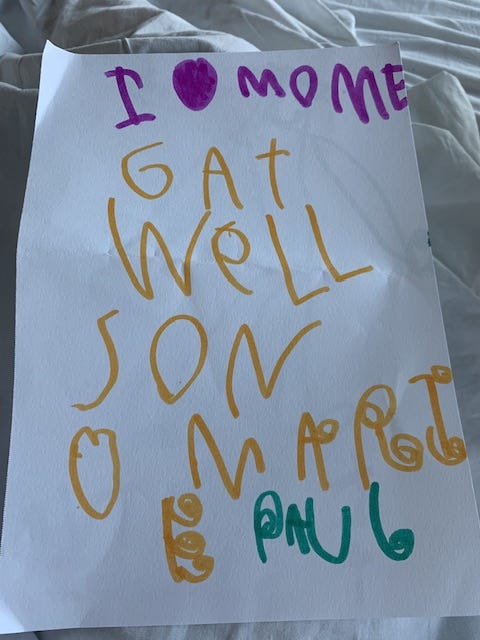 I ♥ MOME
GAT
WeLL
SON
O MARI
E PAUL